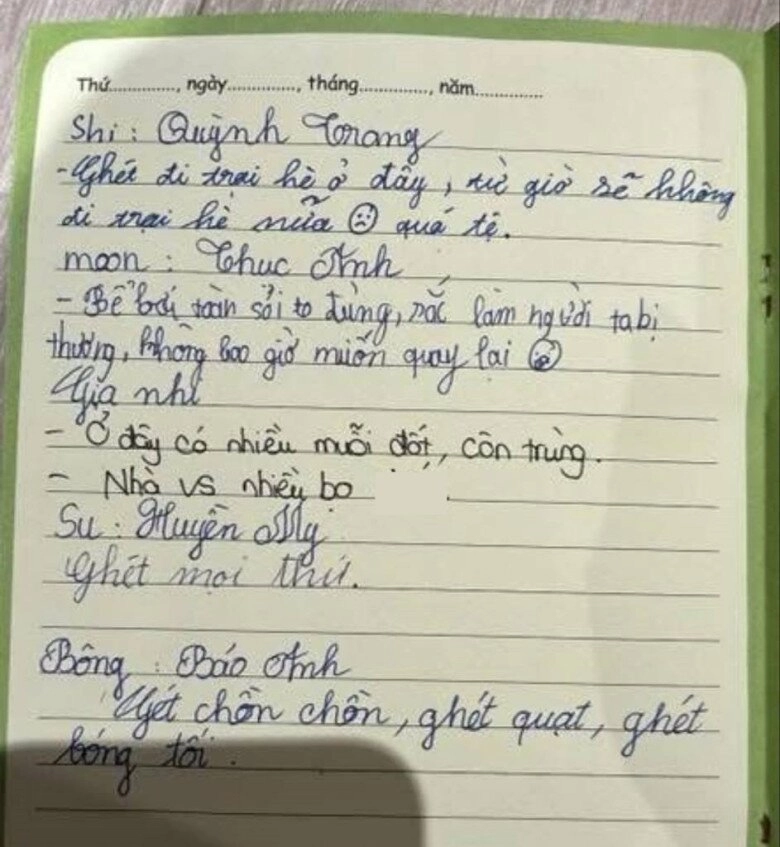 Thứ..............., ngày..............., tháng..............., năm...............
Shi : Quỳnh Trang
- Ghét đi trại hè ở đây, từ giờ sẽ không
đi trại hè nữa ☹ quá tệ.
moon : Thuc Anh
- Bể bơi toàn sỏi to đùng, rác làm người ta bị
thương, không bao giờ muốn quay lại
Gia nhi
- Ở đây có nhiều muỗi đốt, côn trùng.
- Nhà vs nhiều bo
Su : Huyền My
ghét mọi thứ.
Bông : Báo Anh
Gét chồn chồn, ghét quạt, ghét
bóng tối.